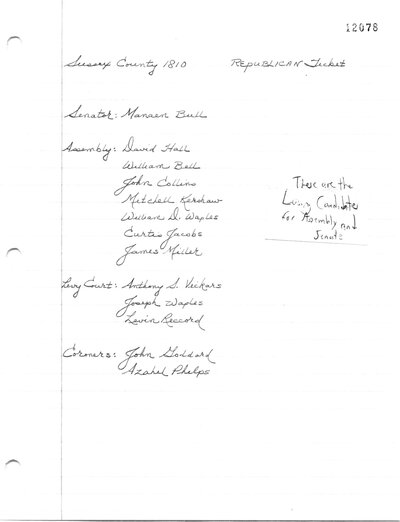 12078
Sussex County 1810 REPUBLICAN Ticket
Senator: Manaen Bull
Assembly: David Hall
William Bell
John Collins
Mitchell Kershaw
William D. Waples
Curtis Jacobs
James Miller
These are the
Losing Candidates
for Assembly and
Senate
Levy Court: Anthony S. Vickars
Joseph Waples
Lovin Reccord
Coroners: John Goddard
Azahel Phelps